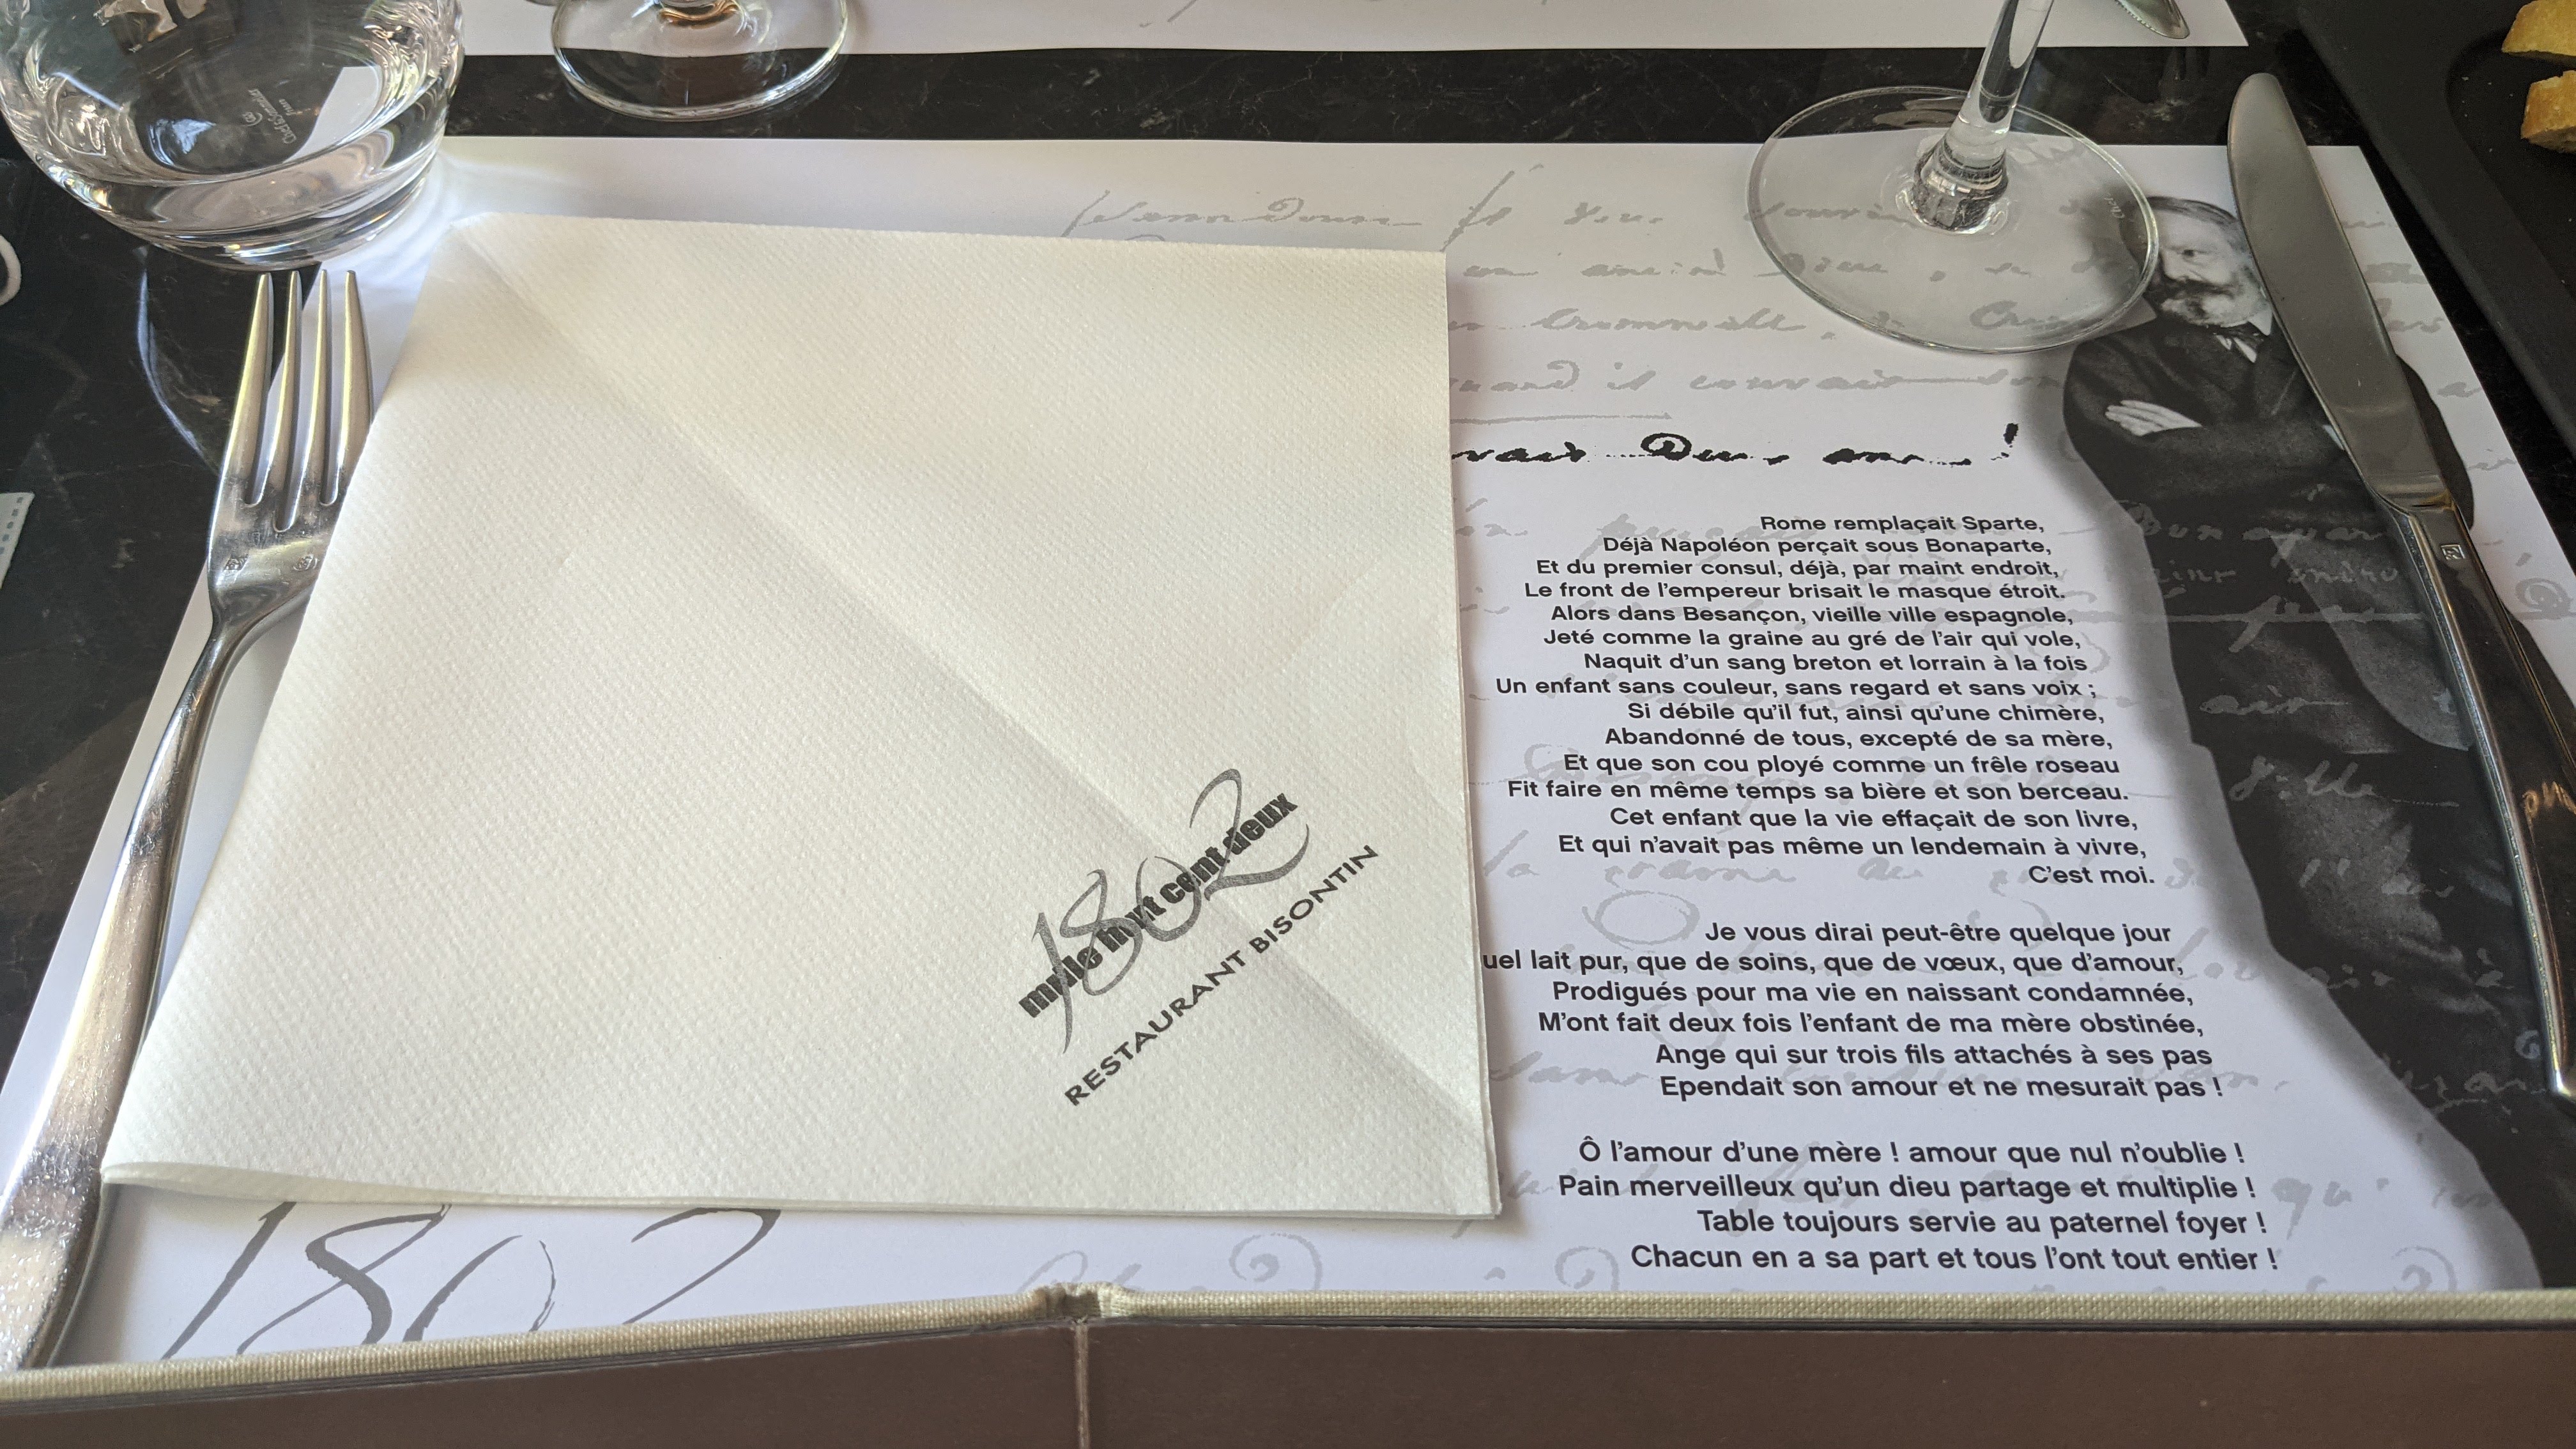 vais Deux ans !
Rome remplaçait Sparte,
Déjà Napoléon perçait sous Bonaparte,
Et du premier consul, déjà, par maint endroit,
Le front de l'empereur brisait le masque étroit.
Alors dans Besançon, vieille ville espagnole,
Jeté comme la graine au gré de l'air qui vole,
Naquit d'un sang breton et lorrain à la fois
Un enfant sans couleur, sans regard et sans voix ;
Si débile qu'il fut, ainsi qu'une chimère,
Abandonné de tous, excepté de sa mère,
Et que son cou ployé comme un frêle roseau
Fit faire en même temps sa bière et son berceau.
Cet enfant que la vie effaçait de son livre,
Et qui n'avait pas même un lendemain à vivre,
C'est moi.
Je vous dirai peut-être quelque jour
uel lait pur, que de soins, que de vœux, que d'amour,
Prodigués pour ma vie en naissant condamnée,
M'ont fait deux fois l'enfant de ma mère obstinée,
Ange qui sur trois fils attachés à ses pas
Ependait son amour et ne mesurait pas !
Ô l'amour d'une mère ! amour que nul n'oublie !
Pain merveilleux qu'un dieu partage et multiplie !
Table toujours servie au paternel foyer !
Chacun en a sa part et tous l'ont tout entier !
1802
mille huit cent deux
RESTAURANT BISONTIN
1802